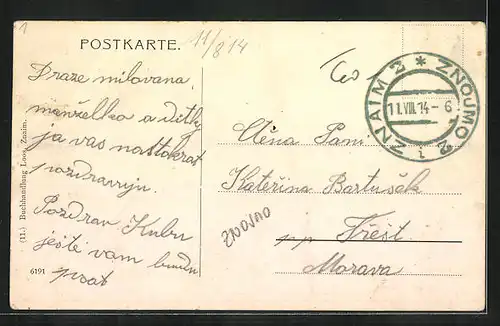 1
POSTKARTE.
11/8 14
Draze milovana
manželko a dítky
ja vas nastokrat
pozdravuju.
Pozdrav Kubu
ješte vam budu
psat
ZNAIM 2 * ZNOJMO 2
11.VIII.14-6
1
Ctěna Pani
Kateřina Bartušek
pp Třešt
Morava
znojmo
(11.) Buchhandlung Loos, Znaim.
6191